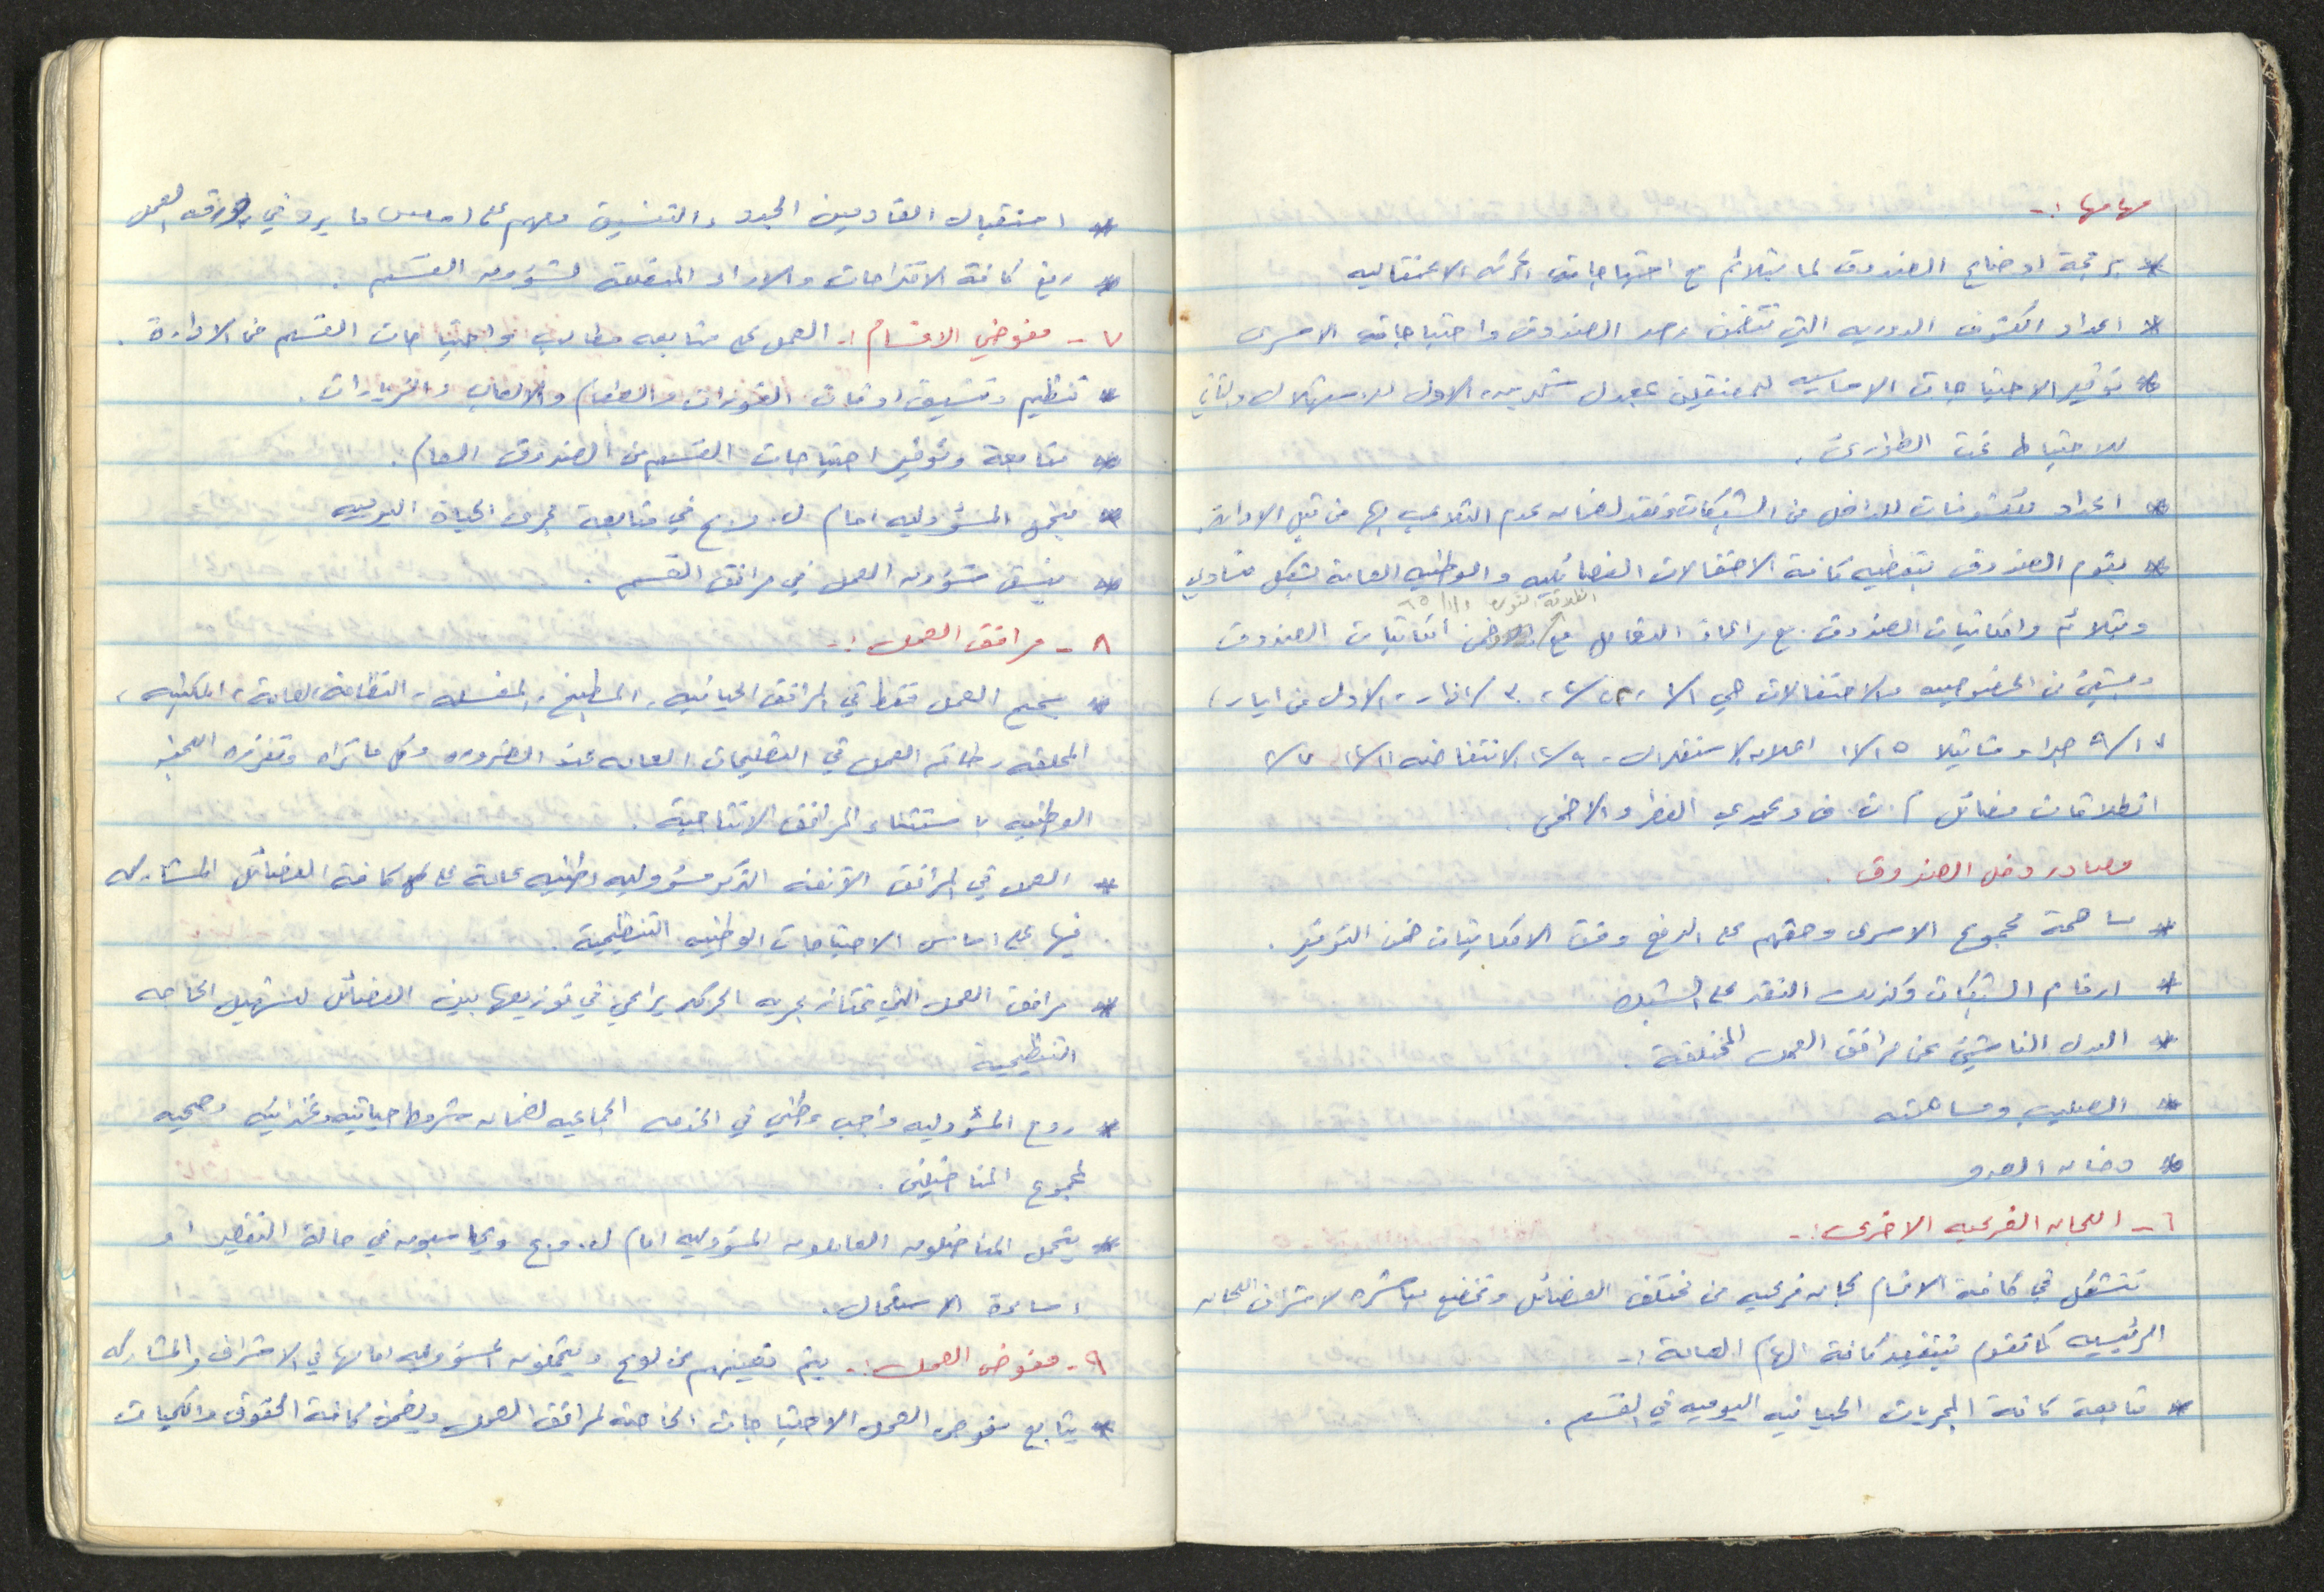 مهامها :-
* برمجة اوضاع الصندوق لما يتلائم مع احتياجات الحركه الاعتقاليه
* اعداد الكشوف الدوريه التي تتضمن رصد الصندوق واحتياجاته الاسرى
* توفير الاحتياجات الاساسيه للمعتقلين بمعدل شهرين، الاول للاستهلاك والثاني
للاحتياط تحت الطوارئ.
* اعداد كشوفات للداخل من الشيكات ونقد لضمان عدم التلاعب بها من قبل الادارة.
* يقوم الصندوق بتغطيه كافة الاحتفالات الفصائليه والوطنيه العامة بشكل متساوي
انطلاقة الثورة ١/١/٦٥
ويتلائم وامكانيات الصندوق. مع مراعاة التعامل مع ضمن امكانيات الصندوق
ويستثنى من الخصوصيه والاحتفالات هي ١/١، ٣٠/اذار، الاول من ايار،
٩/١٧ صبرا وشاتيلا ١١/١٥ اعلان الاستقلال، ١٢/٩ الانتفاضه ١٢/١١
انطلاقات فصائل م.ت.ف وعيدي الفطر والاضحى.
مصادر دخل الصندوق.
* مساهمة مجموع الاسرى وحقهم على الدفع وفق الامكانيات ضمن التوفير.
* ارقام الشيكات وكذلك النقد على الشبك
* البدل الناشئ عن مرافق العمل المختلفة.
* الصليب ومساهمته
* وخانه العدو
٦- اللجان الفرعيه الاخرى :-
تتشكل في كافة الاقسام لجان فرعيه من مختلف الفصائل وتخضع مباشره لاشراف اللجان
الرئيسيه كما تقوم بتنفيذ كافة المهام العامة :-
* متابعة كافة المجريات الحياتيه اليوميه في القسم.
* استقبال القادمين الجدد والتنسيق معهم على اساس ما يرد في ورقه العمل
* رفع كافة الاقتراحات والاراء المتعلقة لشؤون القسم.
٧- مفوضي الاقسام :- العمل على متابعه مطالب واحتياجات القسم من الادارة.
* تنظيم وتنسيق اوقات الفورات والطعام والالعاب والزيارات.
* متابعة وتوفير احتياجات القسم من الصندوق العام.
* يتحمل المسؤوليه امام ل.و.ع في متابعة مجرى الحياة اليوميه
* ينسق شؤون العمل في مرافق القسم.
٨- مرافق العمل :-
* يسمح العمل فقط في المرافق الحياتيه، المطبخ، المغسله، النظافة العامة، المكتبه،
المحلقه، طاقم العمل في التعليمات العامه عند الضروره وكل ما تراه وتفرزه اللجنه
الوطنيه باستثناء المرافق الانتاجية.
* العمل في المرافق الآنفه الذكر مسؤوليه وطنيه عامة على كافة الفصائل المشاركه
فيها على اساس الاحتياجات الوطنيه التنظيمية.
* مرافق العمل التي تمتاز بحريه الحركه يراعى في توزيعها بين الفصائل لتسهيل الحاجه
التنظيمية
* روح المسؤوليه واجب وطني في الخدمه الجماعيه لضمان شروط حياتيه وغذائيه وصحيه
لمجموع المناضلين.
* يتحمل المناضلون العاملون المسؤوليه امام ل.و.ع ويحاسبون في حالة التقصير او
اساءة الاستعمال.
٩- مفوض العمل :- يتم تعيينهم من ل و ع ويتحملون المسؤوليه امامها في الاشراف والمشاركه
* يتابع مفوض العمل الاحتياجات الخاصة لمرافق العمل ويضمن كافة الحقوق والكميات